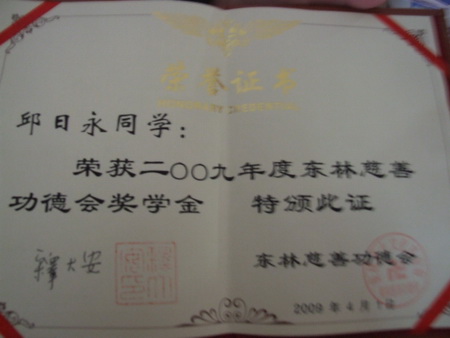 荣誉证书
邱日永同学：
荣获二〇〇九年度东林慈善
功德会奖学金 特颁此证
东林慈善功德会
2009 年 4 月 1日